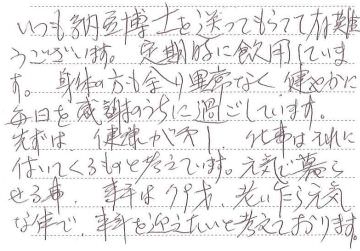 いつも納豆博士を送ってもらって有難
うございます。定期的に飲用していま
す。身体の方も余り異常なく健やかに
毎日を感謝のうちに過ごしています。
先ずは、健康が第一 仕事はそれに
付いてくるものと考えています。元気で暮ら
せる事、来年は79才、老いたら元気
な体で、来年を迎えたいと考えております。